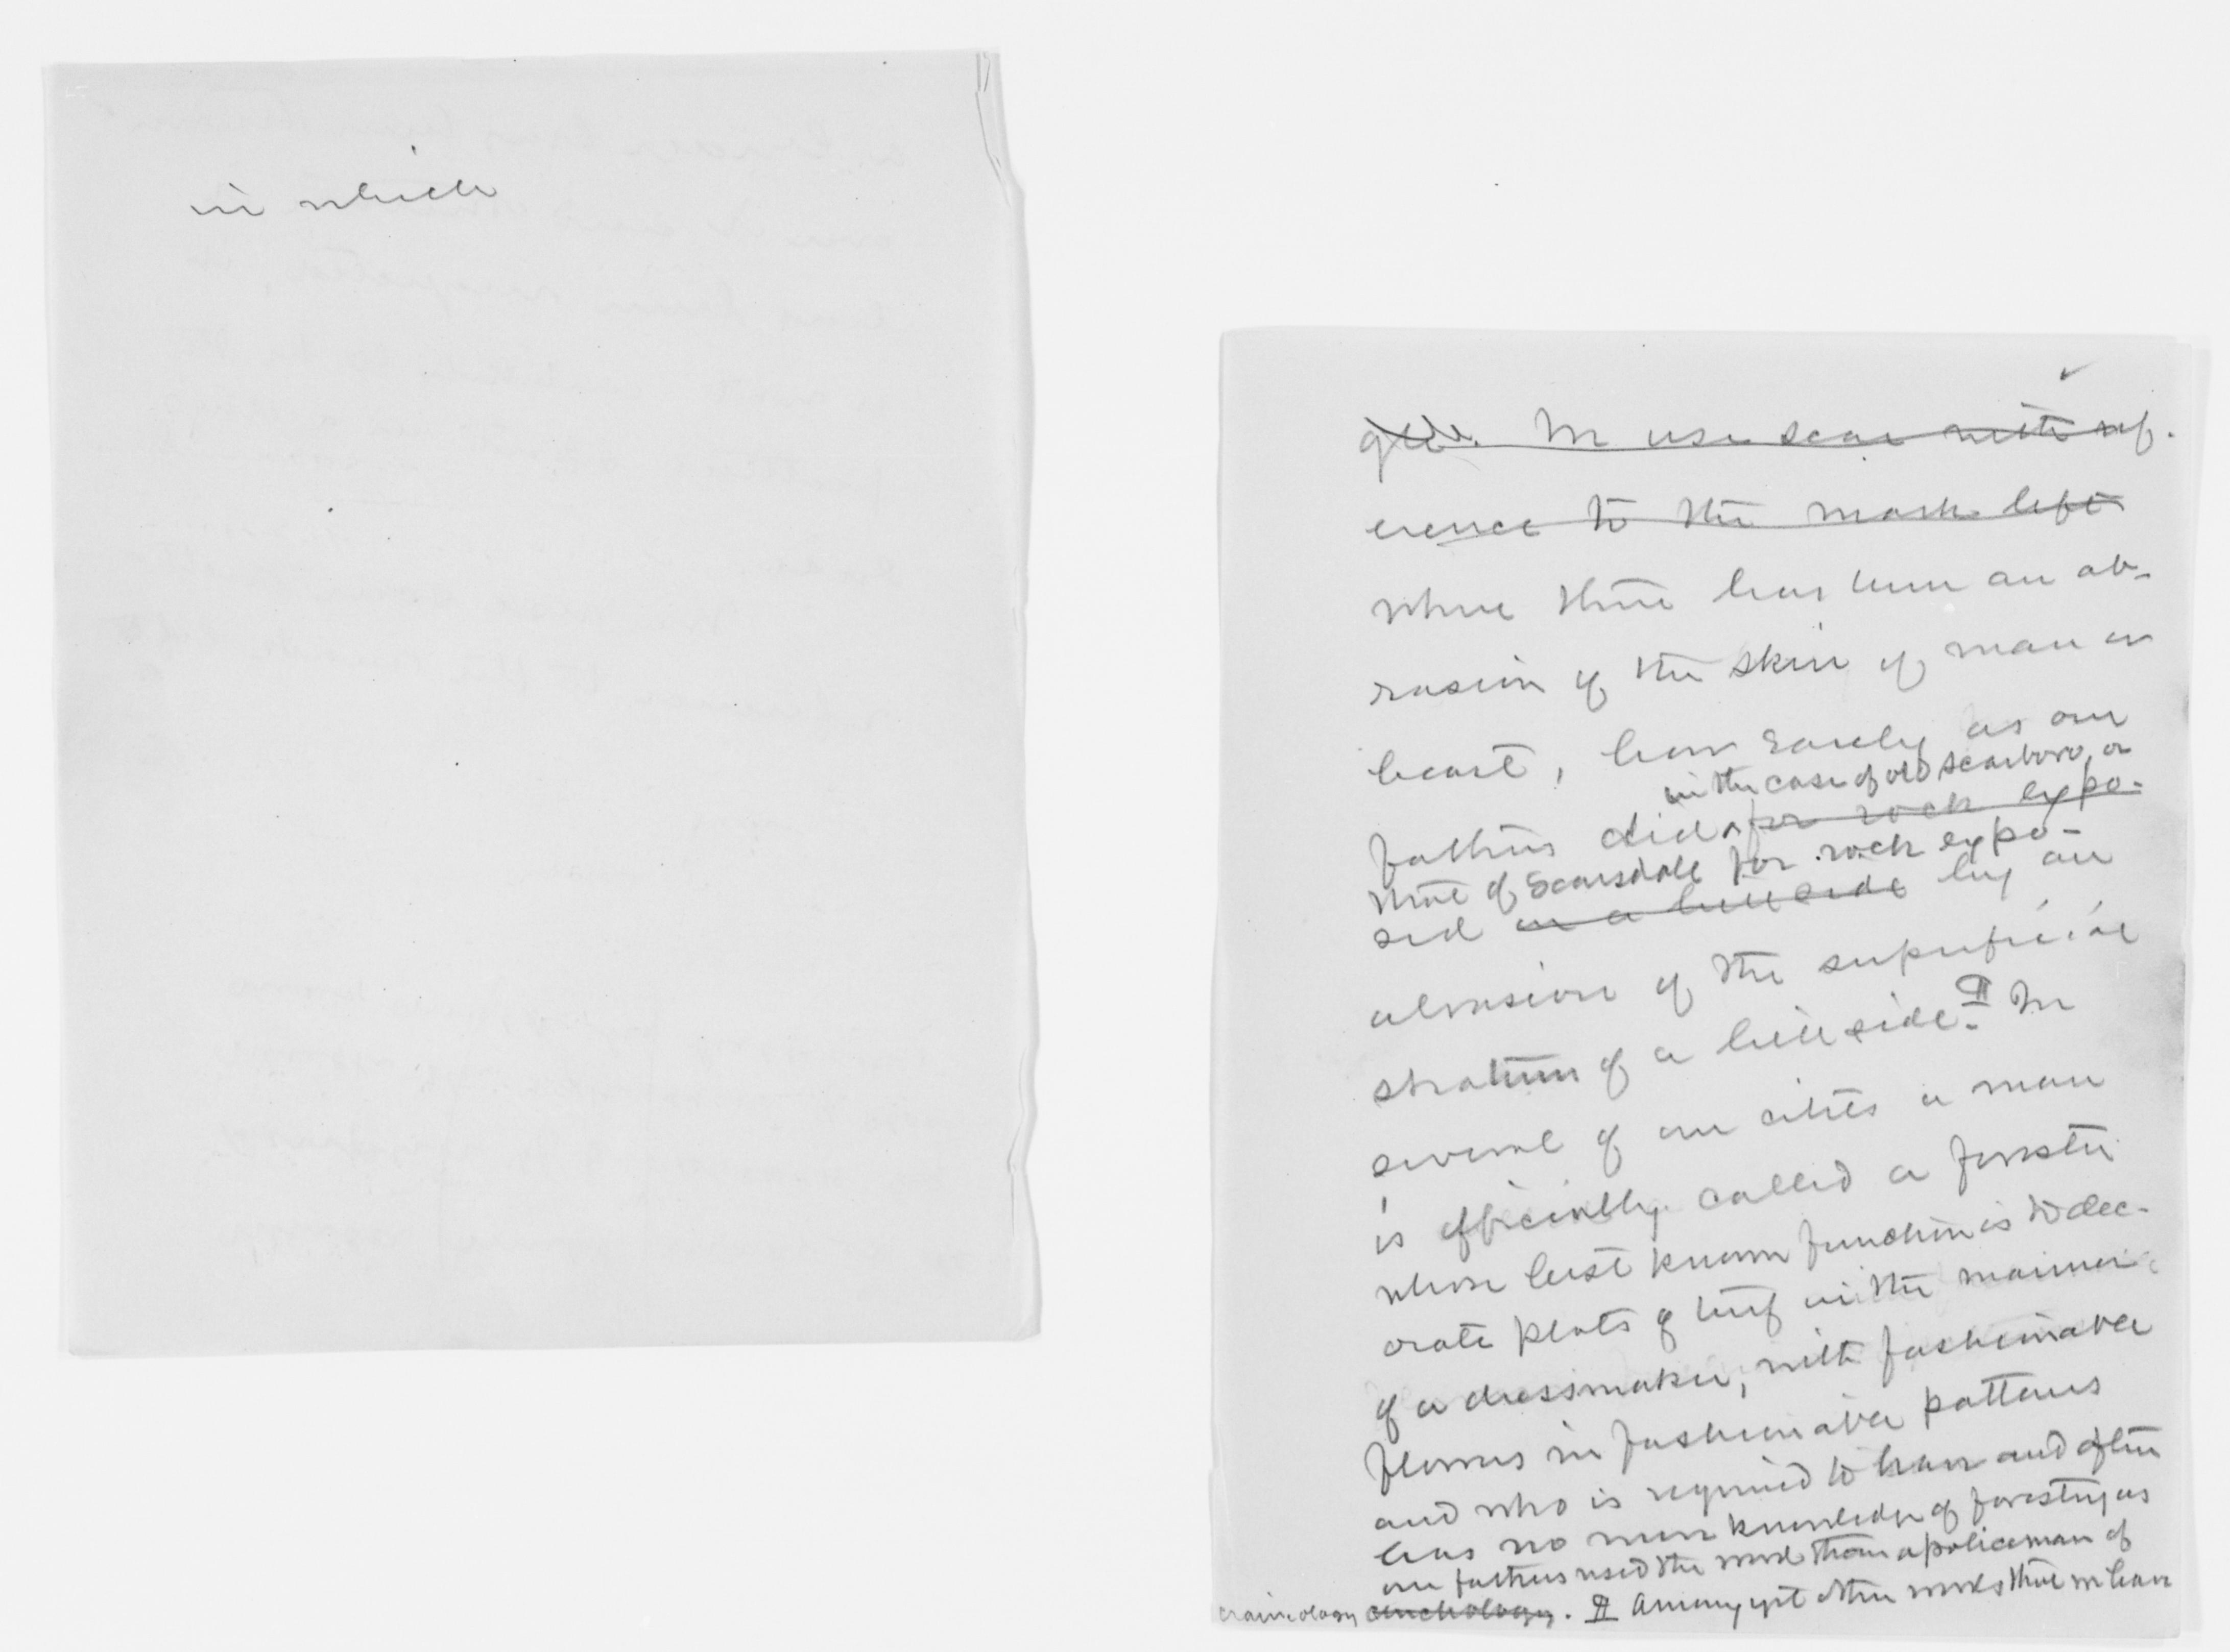 in which
We use scar with ref-
erence to the mark left
where there has been an ab-
rasion of the skin of man or
beast, how rarely as our
in the case of old Scarboro, or
fathers did for rock expo-
that of Scarsdale for rock expo-
sed on a hill side by an
abrasion of the superficial
stratum of a hill side. ¶ In
several of our cities a man
is officially called a forester
whose best known function is to dec-
orate plats of turf in the manner
of a dressmaker, with fashionable
flowers in fashionable patterns
and who is required to have and often
has no more knowledge of forestry as
our fathers used the word than a policeman of
craniology conchology. ¶ Among yet other words that we have